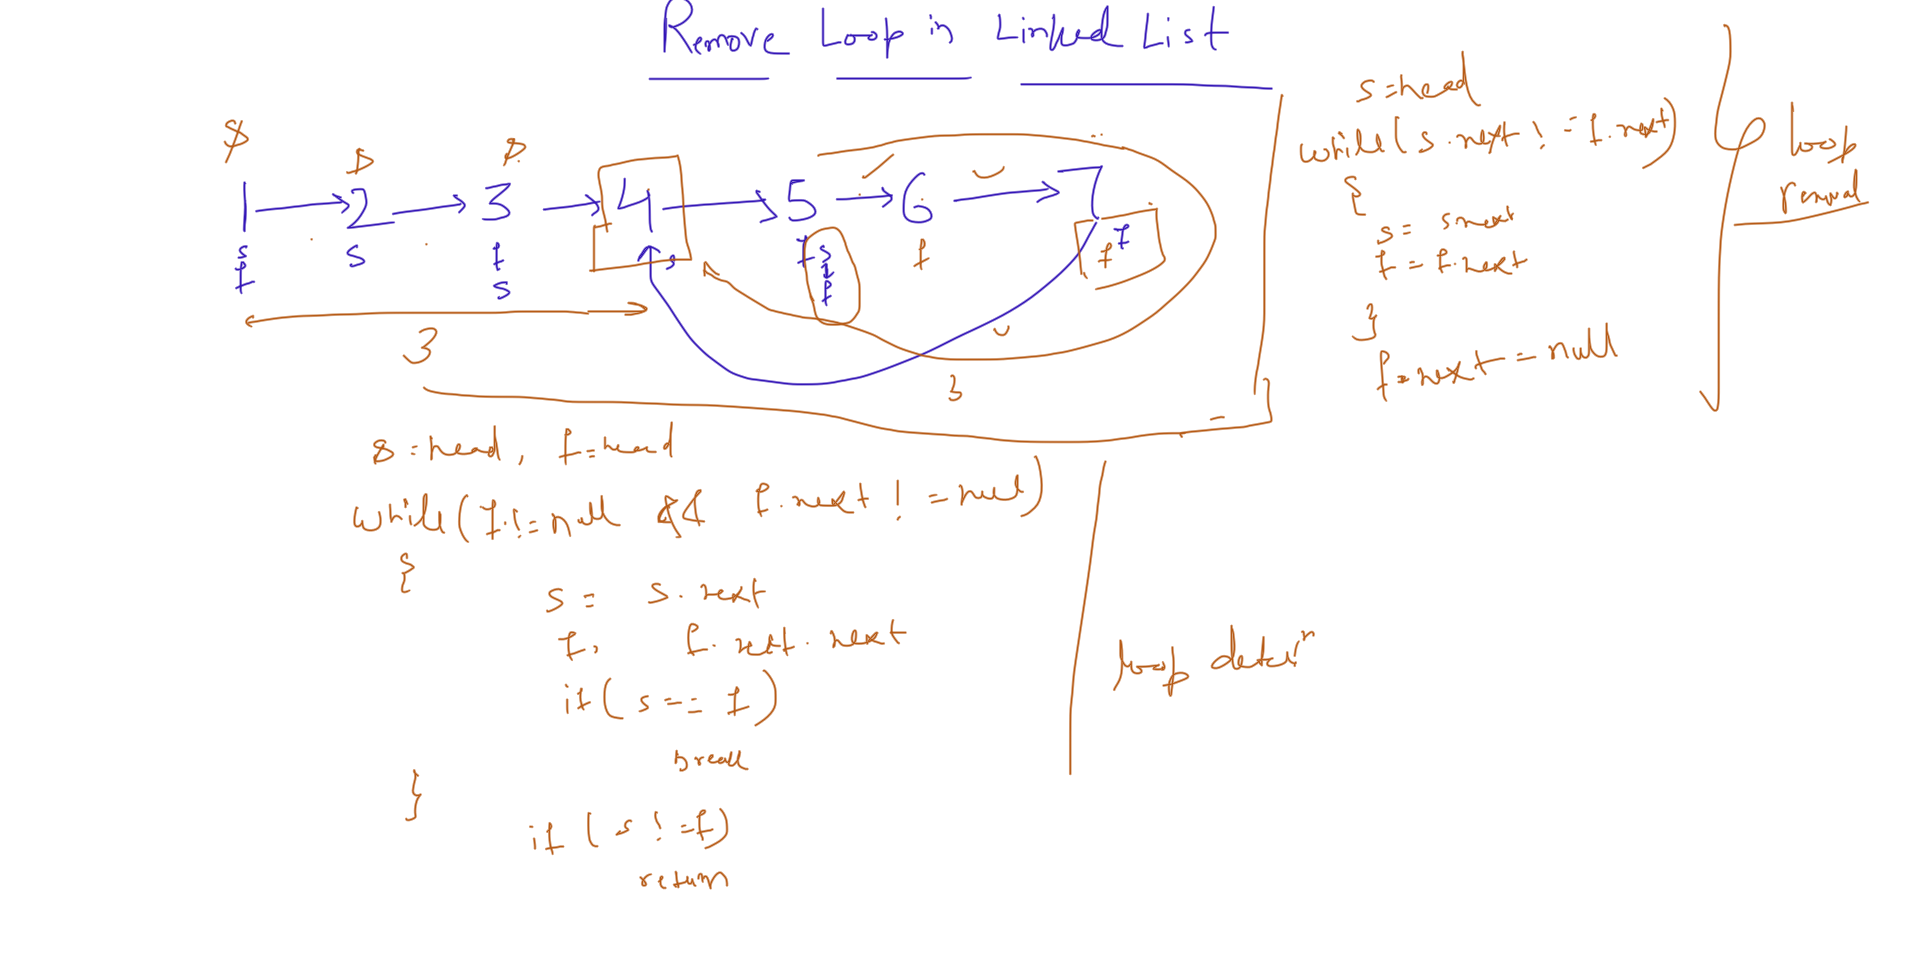 Remove Loop in Linked List
s s s
1 → 2 → 3 → 4 → 5 → 6 → 7
s s f s f s f f
f s f
f
3
3
s = head, f = head
while( f != null && f.next != null)
{
s = s.next
f = f.next.next
if( s == f)
break
}
if ( s != f)
return
loop detec^n
s = head
while( s.next != f.next)
{
s = s.next
f = f.next
}
f.next = null
loop
removal